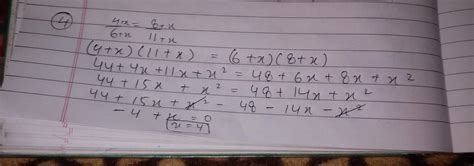 ④ (4+x)/(6+x) = (8+x)/(11+x)
(4+x)(11+x) = (6+x)(8+x)
44+4x+11x+x² = 48+6x+8x+x²
44+15x+x² = 48+14x+x²
44+15x+x² - 48 - 14x - x²
-4 + x = 0
x = 4